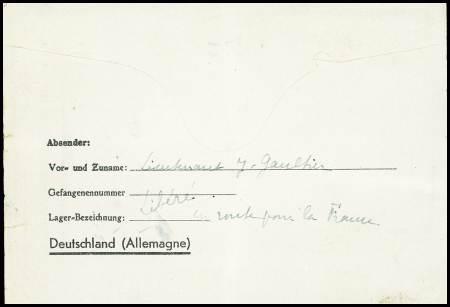 Absender:
Vor- und Zuname: Lieutenant J. Gaultier
Gefangenennummer Libéré
Lager-Bezeichnung: en route pour la France
Deutschland (Allemagne)